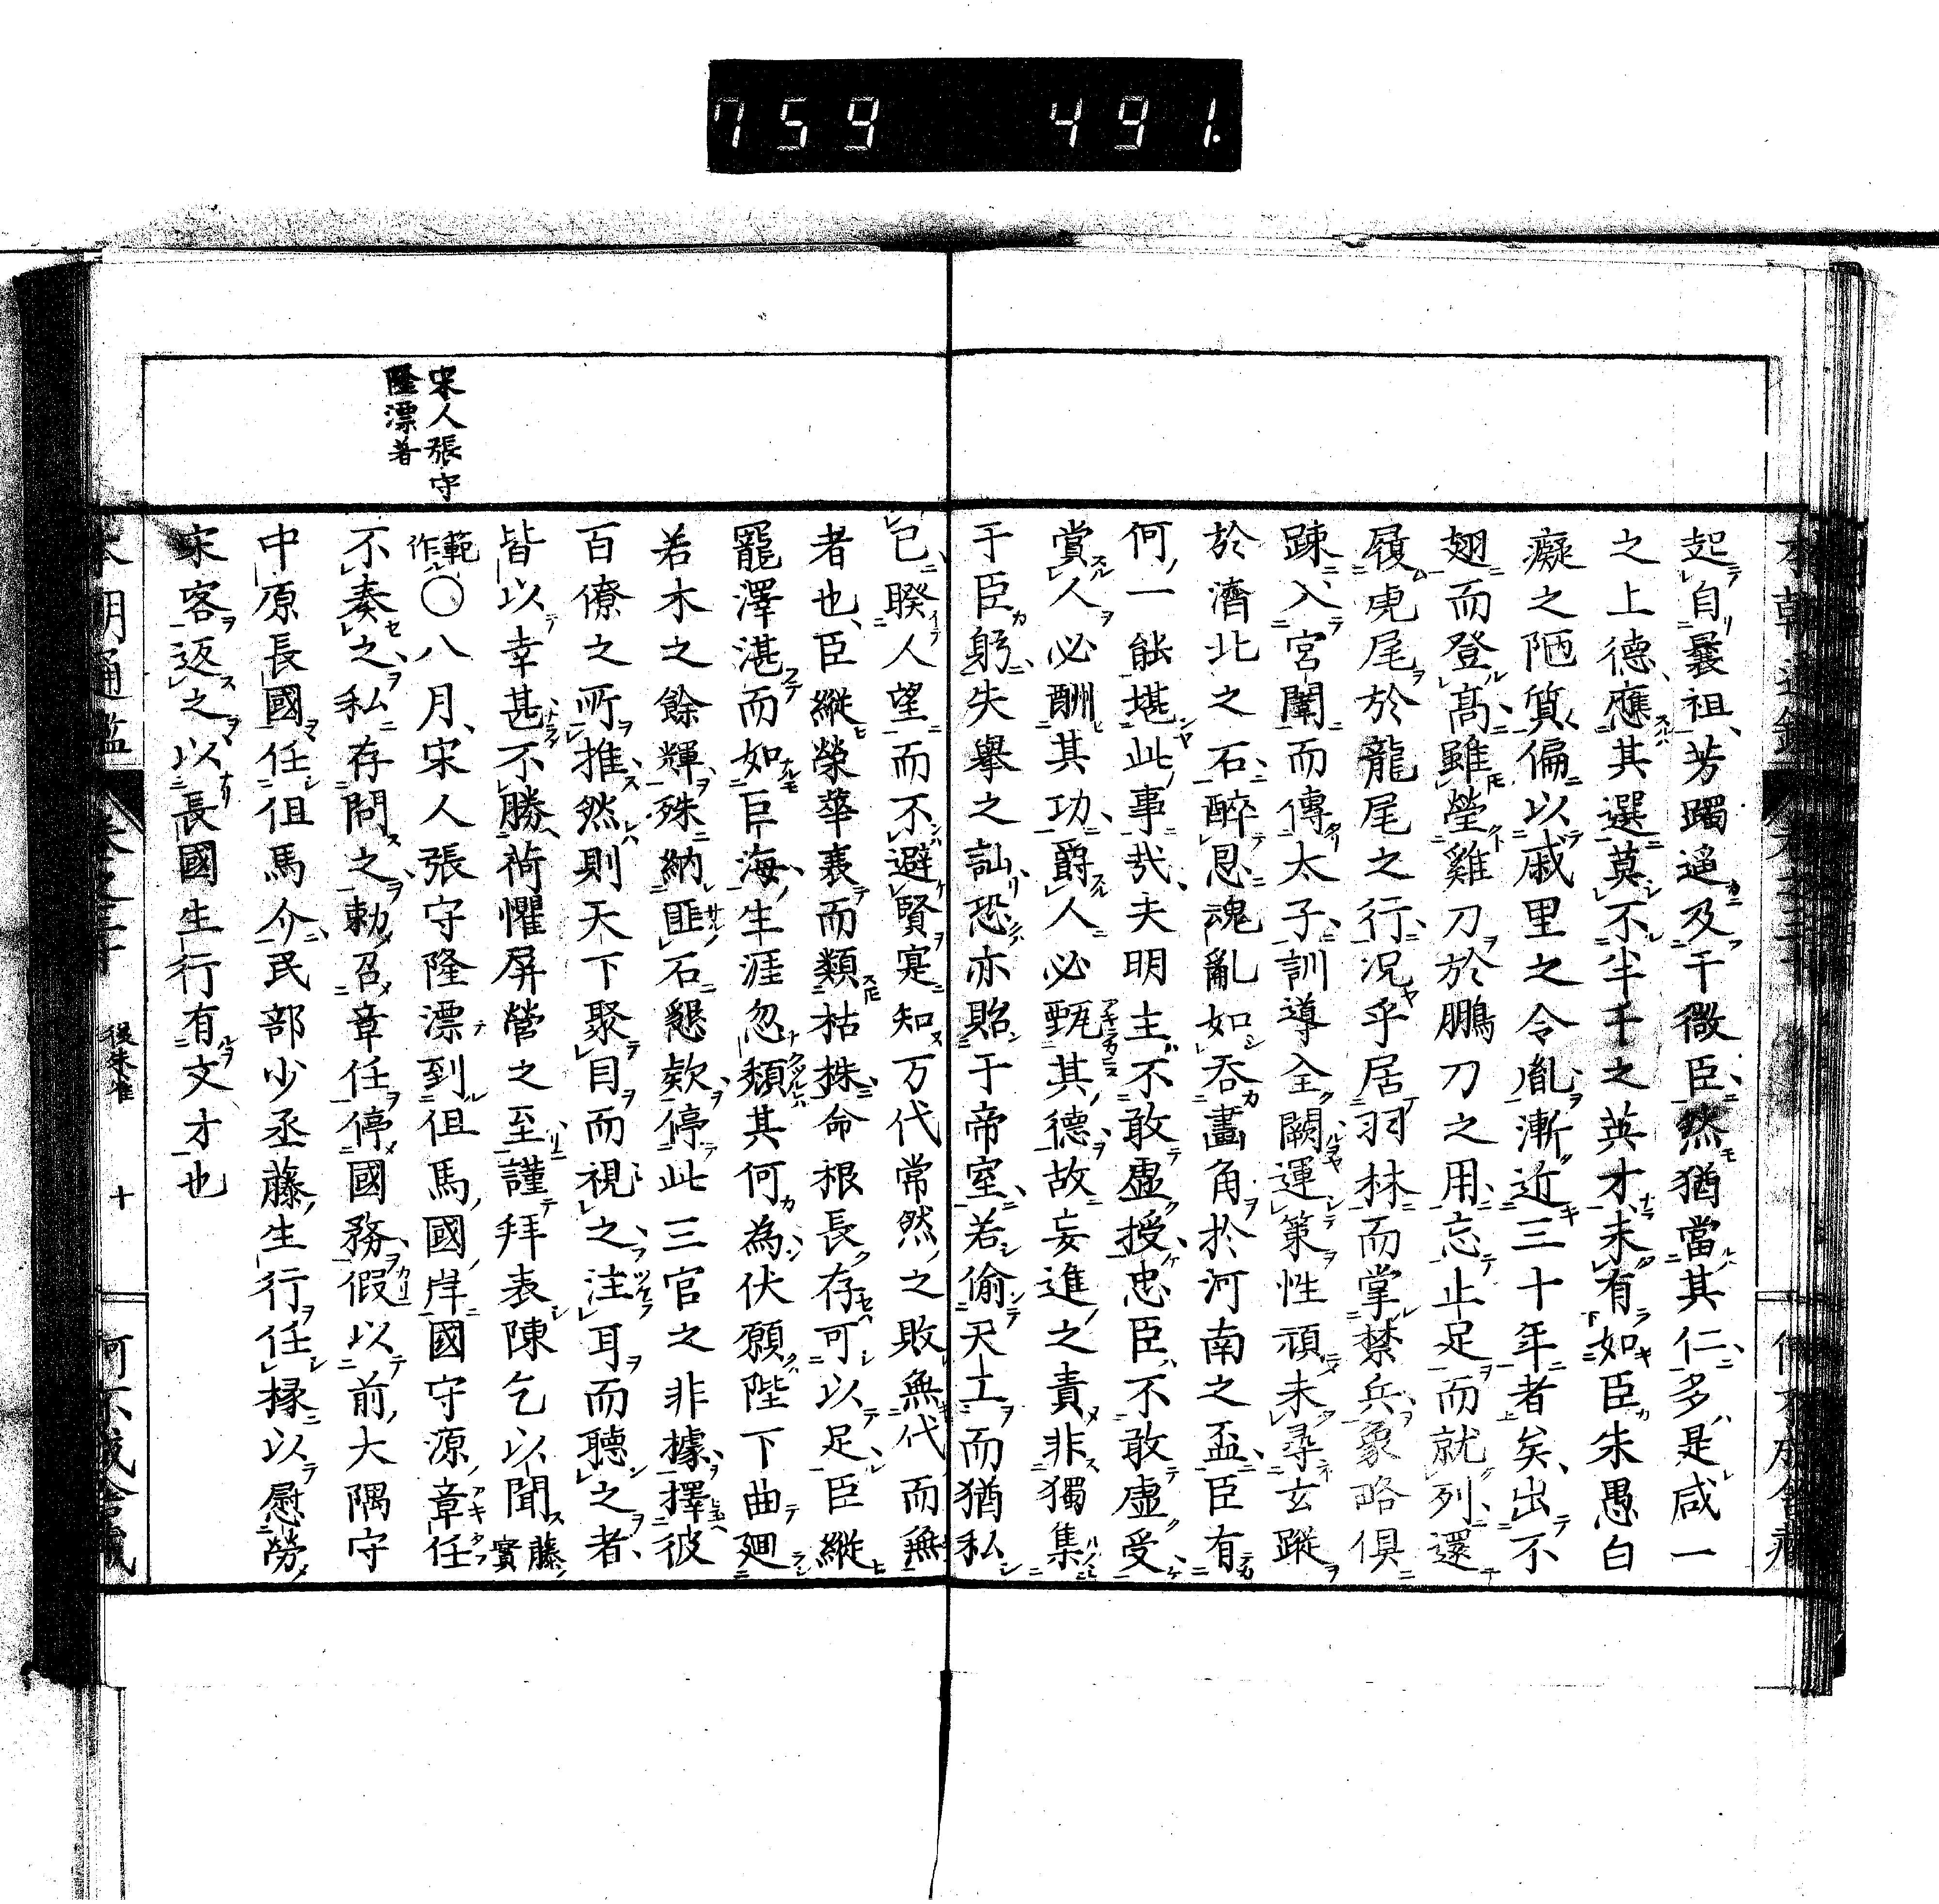 759 491.
起自曩祖芳躅遥及干微臣然猶當其仁多是咸一
之上德應其選莫不半千之英才未有如臣朱愚白
癡之陋質偏以戚里之令胤漸近三十年者矣出不
翅而登高雖瑩雞刀於鵬刀之用忘止足而就列還
履虎尾於龍尾之行况乎居羽林而掌禁兵象略俱
踈入宮闈而傳太子訓導全闕運策性頑未尋玄蹤
於濟北之石醉恩魂亂如吞畫角於河南之盃臣有
何一能堪此事哉夫明主不敢虚授忠臣不敢虚受
賞人必酬其功爵人必甄其德故妄進之責非獨集
于臣躬失擧之訕恐亦貽于帝室若偷天工而猶私
已睽人望而不避賢寔知万代常然之敗無代而無
者也臣縱榮華衰而類枯株命根長存可以足臣縱
寵澤湛而如巨海生涯忽頽其何為伏願陛下曲廻
若木之餘輝殊納匪石懇款停此三官之非據擇彼
百僚之所推然則天下聚目而視之注耳而聽之者
皆以幸甚不勝荷懼屏營之至謹拜表陳乞以聞藤實
範作〇八月宋人張守隆漂到伹馬國岸國守源章任
不奏之私存問之勅召章任停國務假以前大隅守
中原長國任伹馬介民部少丞藤生行任掾以慰勞
宋客返之以長國生行有文才也
宋人張守
隆漂著
後朱雀 十